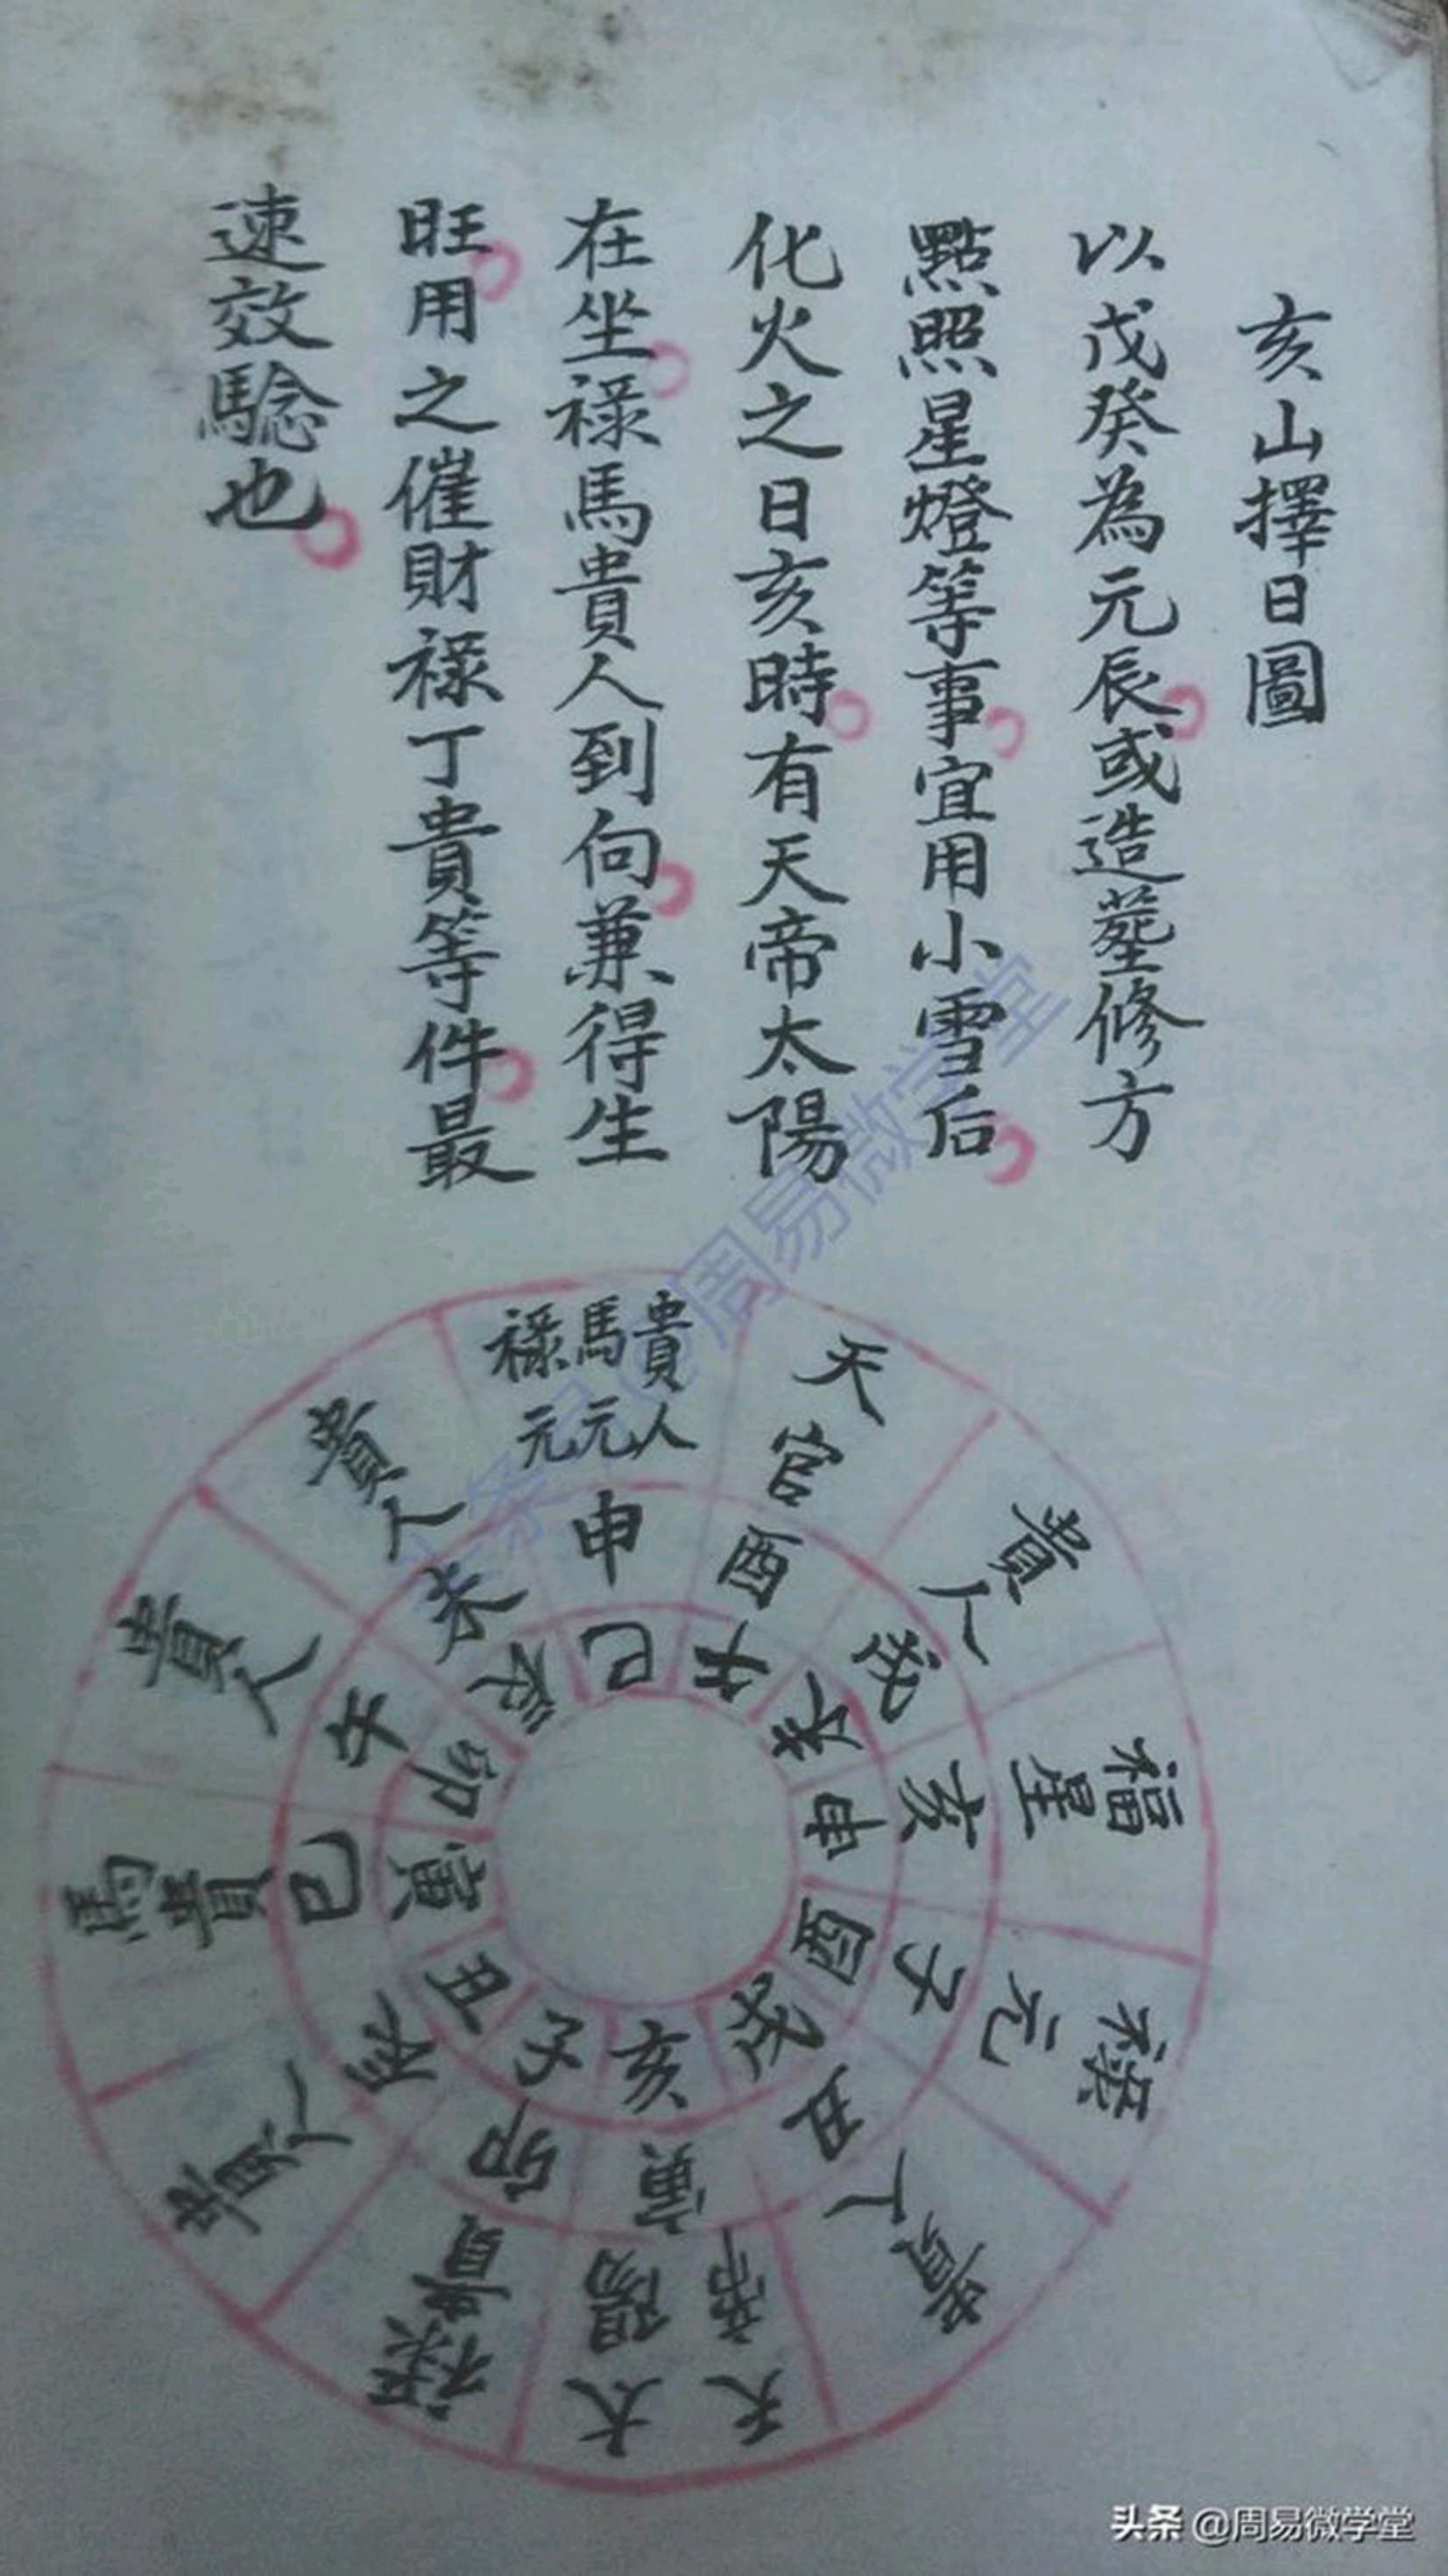 亥山擇日圖
以戊癸為元辰或造塟修方
點照星燈等事宜用小雪后
化火之日亥時有天帝太陽
在坐祿馬貴人到向兼得生
旺用之催財祿丁貴等件最
速效驗也
祿元 馬元 貴人
天官
貴人
福星
祿元
貴人
天帝 太陽
祿貴
貴人
馬貴
貴人
貴人
申
酉
戌
亥
子
丑
寅
卯
辰
巳
午
未
巳
午
未
申
酉
戌
亥
子
丑
寅
卯
辰
头条@周易微学堂
头条 @周易微学堂